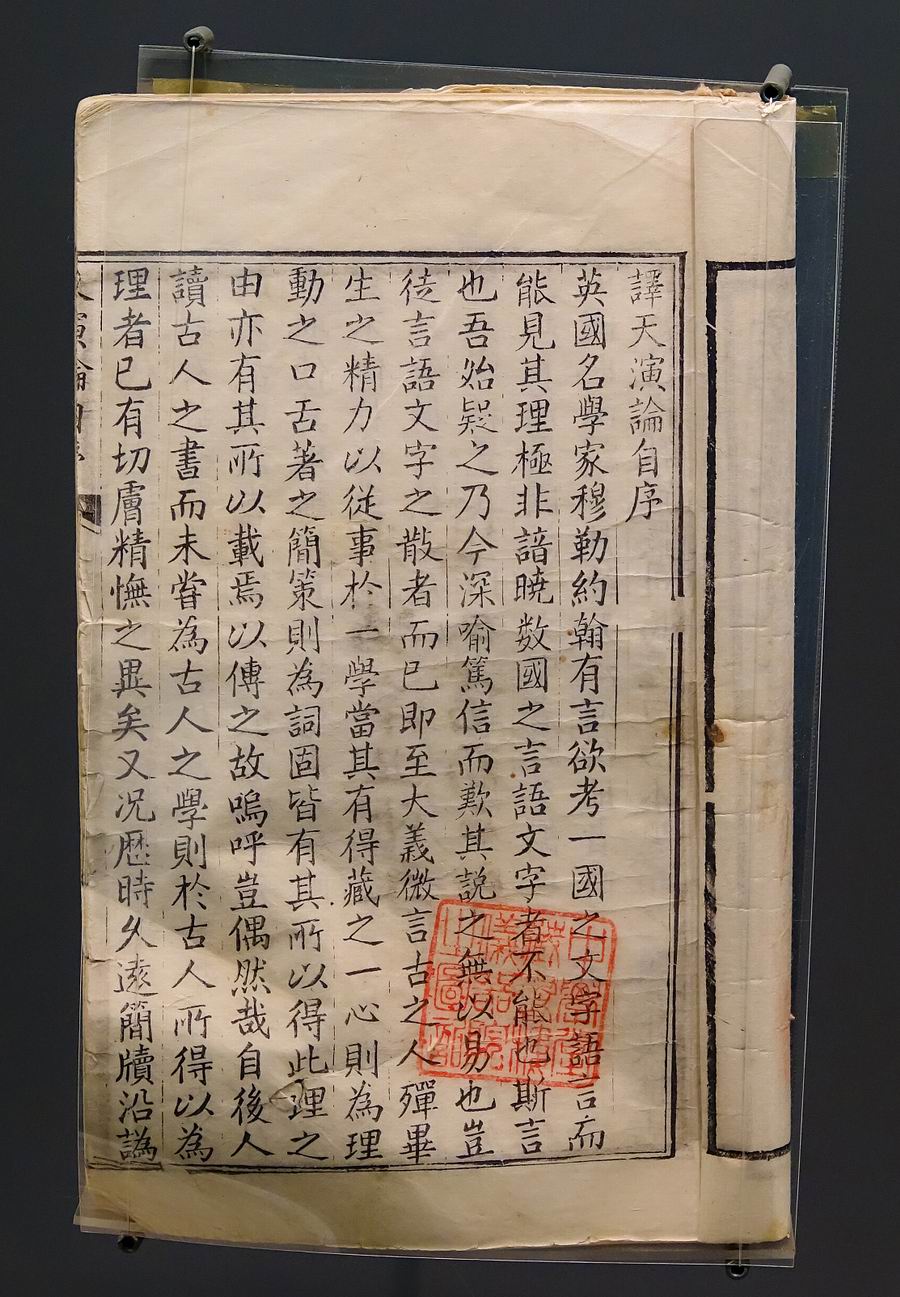 譯天演論自序
英國名學家穆勒約翰有言欲考一國之文字語言而
能見其理極非諳曉数國之言語文字者不能也斯言
也吾始疑之乃今深喻篤信而歎其説之無以易也豈
徒言語文字之散者而已即至大義微言古之人殫畢
生之精力以從事於一學當其有得藏之一心則為理
動之口舌著之簡策則為詞固皆有其所以得此理之
由亦有其所以載焉以傳之故嗚呼豈偶然哉自後人
讀古人之書而未嘗為古人之學則於古人所得以為
理者已有切膚精憮之異矣又况歷時久遠簡牘沿譌